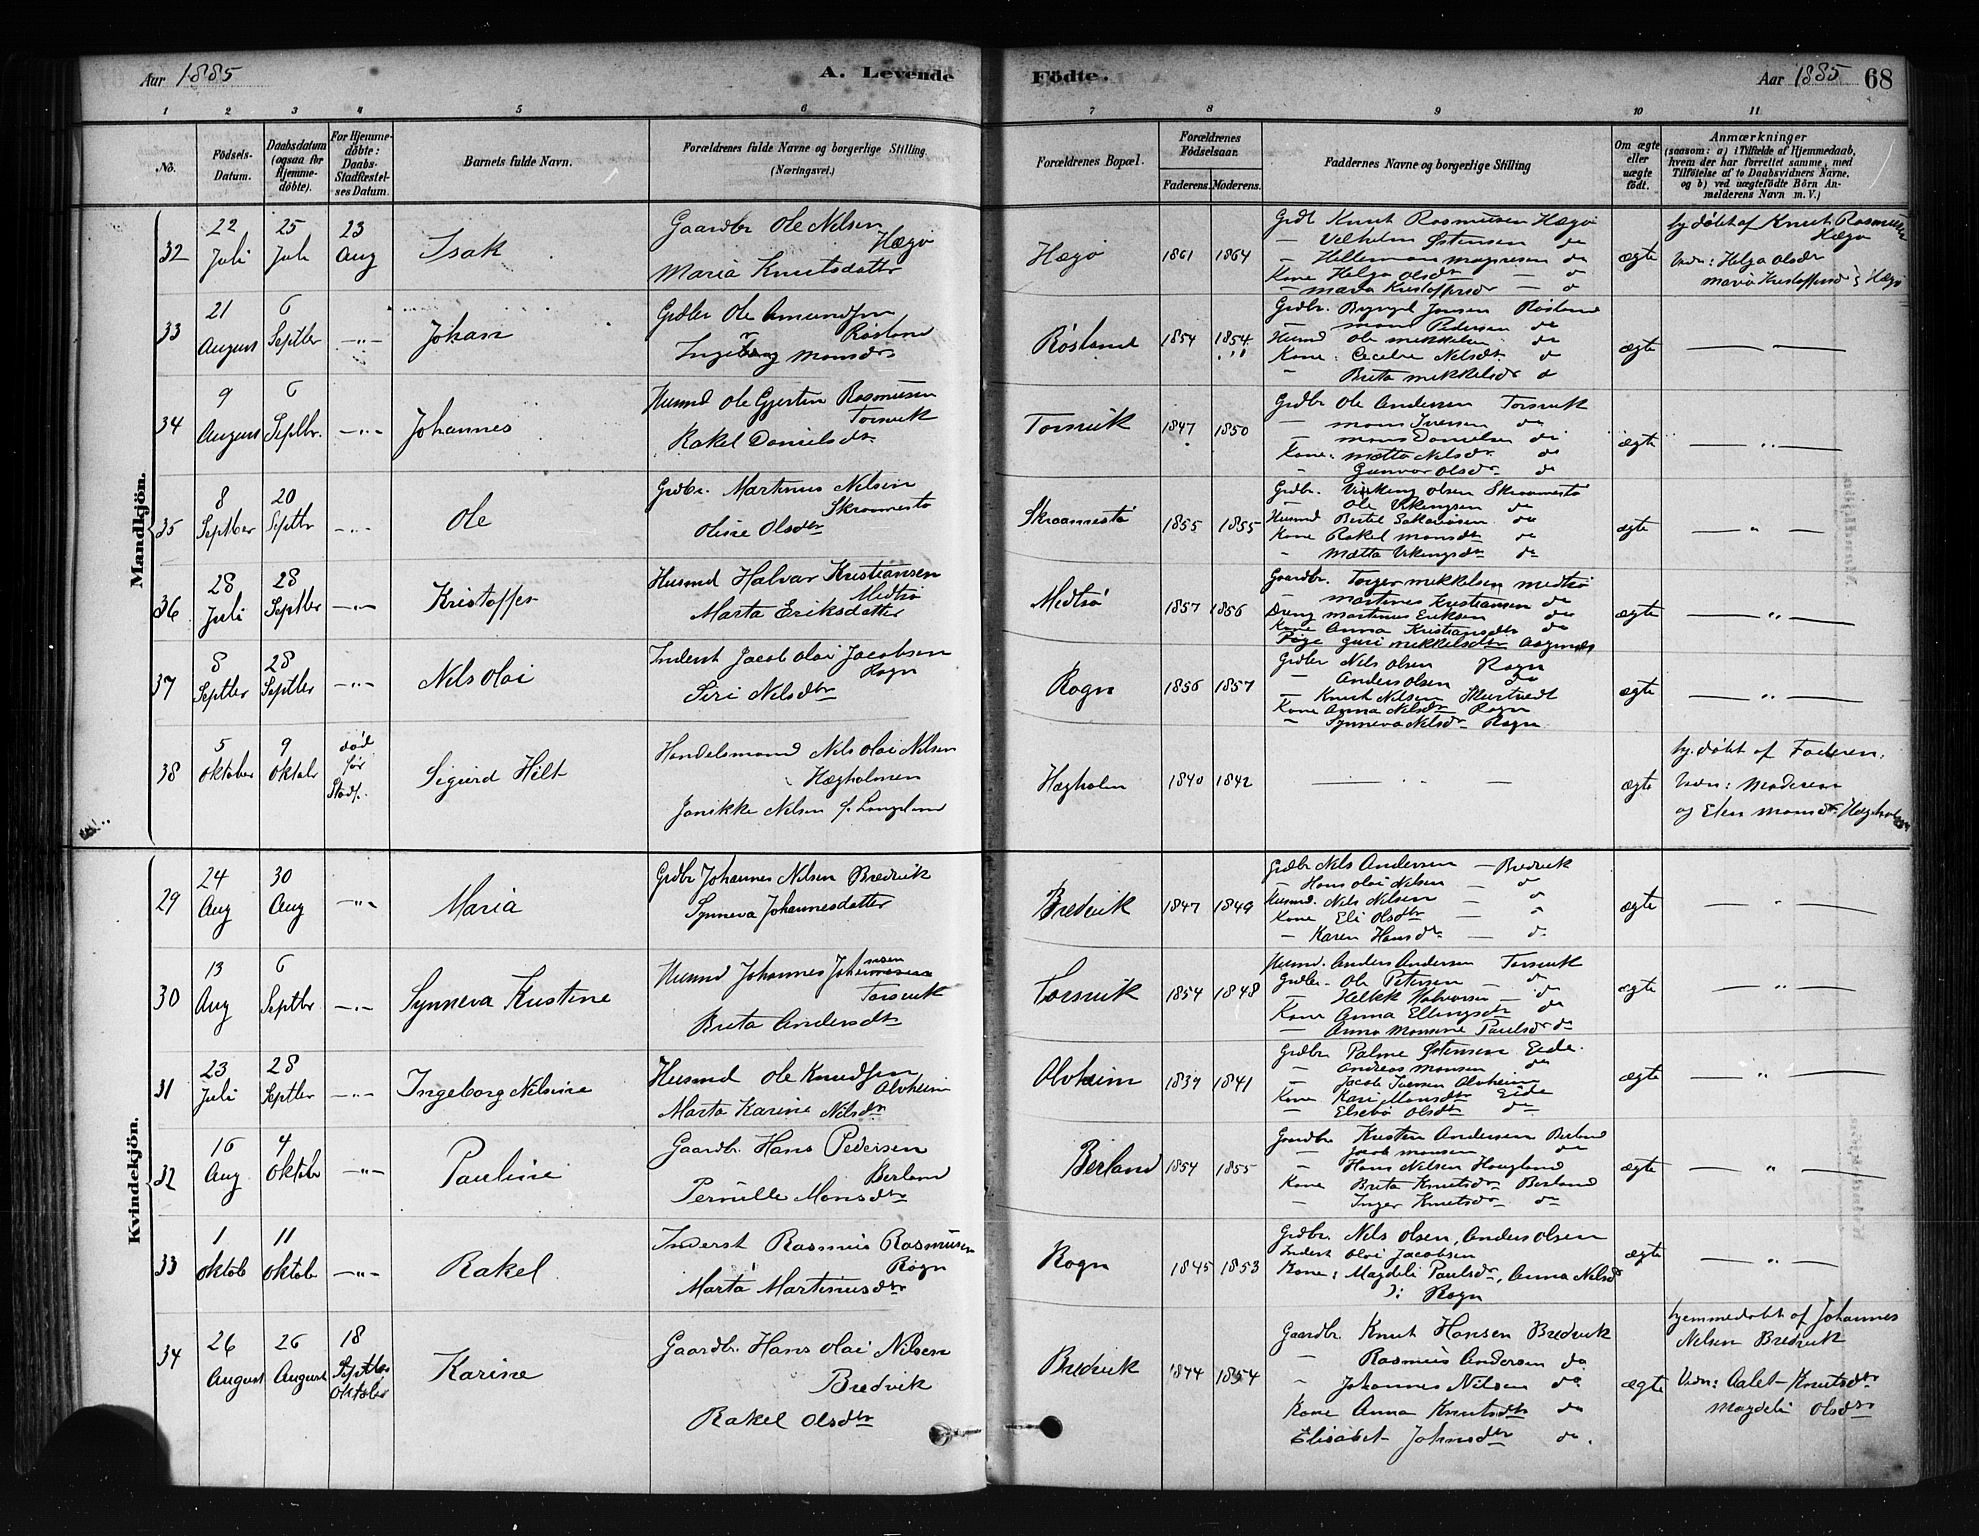 Aar 1885
A. Levende
Födte.
Aar 1885
68
1 2 3 4 5 6 7 8 9 10 11
No.
Födsels-
Datum.
Daabsdatum
(ogsaa for
Hjemme-
döbte).
For Hjemme-
döbte:
Daabs-
Stadfæstel-
ses Datum.
Barnets fulde Navn.
Forældrenes fulde Navne og borgerlige Stilling
(Næringsvei.)
Forældrenes Bopæl.
Forældrenes
Födselsaar.
Faderens. Moderens.
Faddernes Navne og borgerlige Stilling
Om ægte
eller
uægte
födt.
Anmærkninger
(saasom: a) i Tilfælde af Hjemmedaab,
hvem der har forrettet samme, med
Tilföielse af to Daabsvidners Navne,
og b) ved uægtefödte Börn An-
melderens Navn m. V.)
Mandkjön.
32
22
Juli
25
Juli
23
Aug
Isak
Gaardbr Ole Nilsen
Hægø
Maria Knutsdatter
Hægø
1861 1864
Grdb Knut Rasmussen Hægø
— Vilhelm Østensen do
— Hilleman Magnesen do
Kone Helga Olsdr — do
— Maria Kristoffersdr — do
ægte
hj. døbt af Knut Rasmussen
Hægø
Vidn: Helga Olsdr
Maria Kristoffersd } Hægø
33
21
August
6
Septbr
—"—
Johan
Grdbr Ole Amundsen
Røsland
Ingeborg Monsdr
Røsland
1854 1854
Grdbr. Brynjel Jonsen Røsland
— Mons Pedersen do
Husmd Ole Mikkelsen do
Kone: Cecelie Nilsdr do
— Brita Mikkelsdr do
ægte
— " —
34
9
August
6
Septbr.
—"—
Johannes
Husmd Ole Gjertin Rasmusen
Torsvik
Rakel Danielsdtr
Torsvik
1847 1850
Grdbr Ole Andersen Torsvik
— Mons Iversen do
— Mons Danielsen do
Kone: Mætta Nilsdr do
— Gunvor Olsdr do
ægte
— " —
35
8
Septber
20
Septbr
—"—
Ole
Grdbr. Martinus Nilsen
Skraamestø
Oline Olsdtr
Skraamestø
1855 1855
Grdbr. Viking Olsen Skraamestø
— Ole Vikingsen do
Husmd Bertel Sakariasen do
Kone Rakel Monsdtr do
— Mætta Vikingsdtr do
ægte
— " —
36
28
Juli
28
Septber
—"—
Kristoffer
Husmd Halvar Kristiansen
Medtsø
Marta Eriksdatter
Medtsø
1857 1856
Gaardbr. Torger Mikkelsen Medtsø
— Martines Kristiansen do
Dreng Martinus Eriksen do
Kone Anna Kristiansdtr do
Pige Guri Mikkelsdtr
ægte
— " —
37
8
Septber
28
Septber
—"—
Nils Olai
Inderst Jacob Olai Jacobsen
Rogn
Siri Nilsdtr
Rogn
1856 1857
Grdbr Nils Olsen Rogn
— Anders Olsen do
— Knut Nilsen
Kone Anna Nilsdr Rogn
— Synneva Nilsdr Rogn
ægte
— " —
38
5
Oktober
9
Oktobr
død
før
Stadf.
Sigurd Hilt
Handelsmand Nils Olai Nilsen
Hægholmen
Janikke Nilsen f. Langeland
Hægholm
1840 1842
— " —
ægte
hj. døbt af Faderen.
Vidn: Moderen
og Elen Monsdr Hægholmen
Kvindekjön.
29
24
Aug
30
Aug
—"—
Maria
Grdbr Johannes Nilsen Bredvik
Synneva Johannesdatter
Bredvik
1847 1849
Grdbr Nils Andersen — Bredvik
— Hans Olai Nilsen — do
Husmd. Nils Nilsen — do
Kone Eli Olsdtr — do
— Karen Hansdtr — do
ægte
— " —
30
13
Aug
6
Septbr
—"—
Synneva Kristine
Husmd Johannes Johannesen
Torsvik
Brita Andersdtr
Torsvik
1854 1848
Husmd. Anders Andersen Torsvik
Grdbr. Ole Petersen — do
— Halvorsen — do
Kone Anna Ellingsdtr do
— Anna Paulsdr do
ægte
— " —
31
23
Juli
28
Septber
—"—
Ingeborg Nilsine
Husmd Ole Knudsen
Alvheim
Marta Karine Nilsdr
Alvheim
1839 1841
Grdbr. Palme Østensen Eide
— Andreas Monsen do
— Jacob Iversen Alvheim
Kone Kari Monsdtr Eide
— Elsebø Olsdtr do
ægte
— " —
32
16
Aug
4
Oktober
—"—
Pauline
Gaardbr. Hans Pedersen
Berland
Pernille Monsdtr
Berland
1854 1855
Gaardbr Kristen Andersen Berland
— Jacob Monsen do
— Hans Nilsen Hougland
Kone Brita Knutsdr Berland
— Inger Knutsdr do
ægte
— " —
33
1
Oktob
11
Oktob
—"—
Rakel
Inderst Rasmus Rasmusen
Rogn
Marta Martinusdtr
Rogn
1845 1853
Grdbr. Nils Olsen, Anders Olsen
Inderst Olai Jacobsen
Kone: Magdeli Paulsdr, Anna Nilsdr
): Rogn
ægte
— " —
34
26
August
26
August
18
Septbr
Oktober
Karine
Gaardbr. Hans Olai Nilsen
Bredvik
Rakel Olsdtr
Bredvik
1844 1854
Gaardbr. Knut Hansen Bredvik
" Rasmus Andersen do
" Johannes Nilsen do
Kone Anna Knutsdtr do
Elisabet Johnsdtr do.
ægte
hjemmedøbt af Johannes
Nilsen Bredvik
Vidn: Aalet Knutsdtr
Magdeli Olsdtr